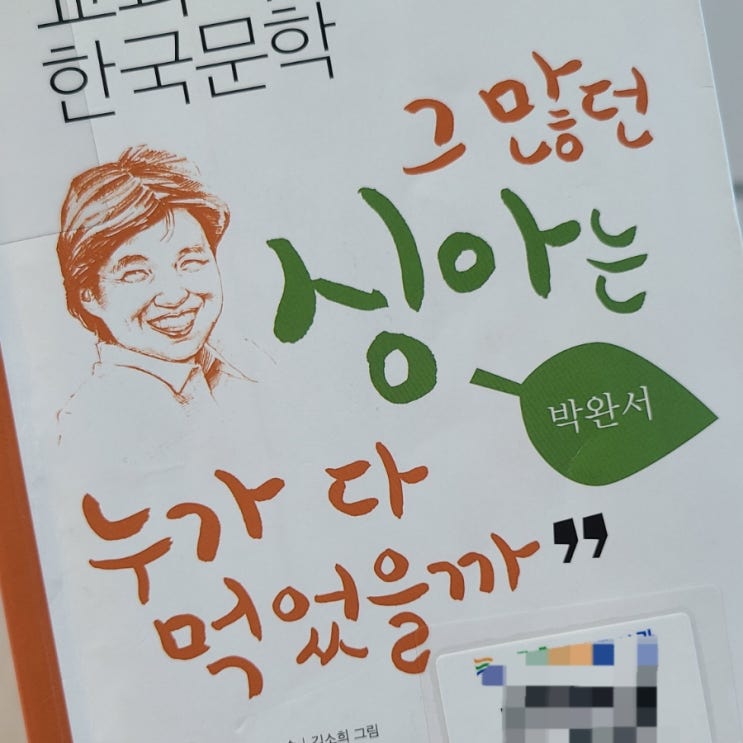 한국문학
그 많던
싱아는
박완서
누가 다
먹었을까”
김소희 그림